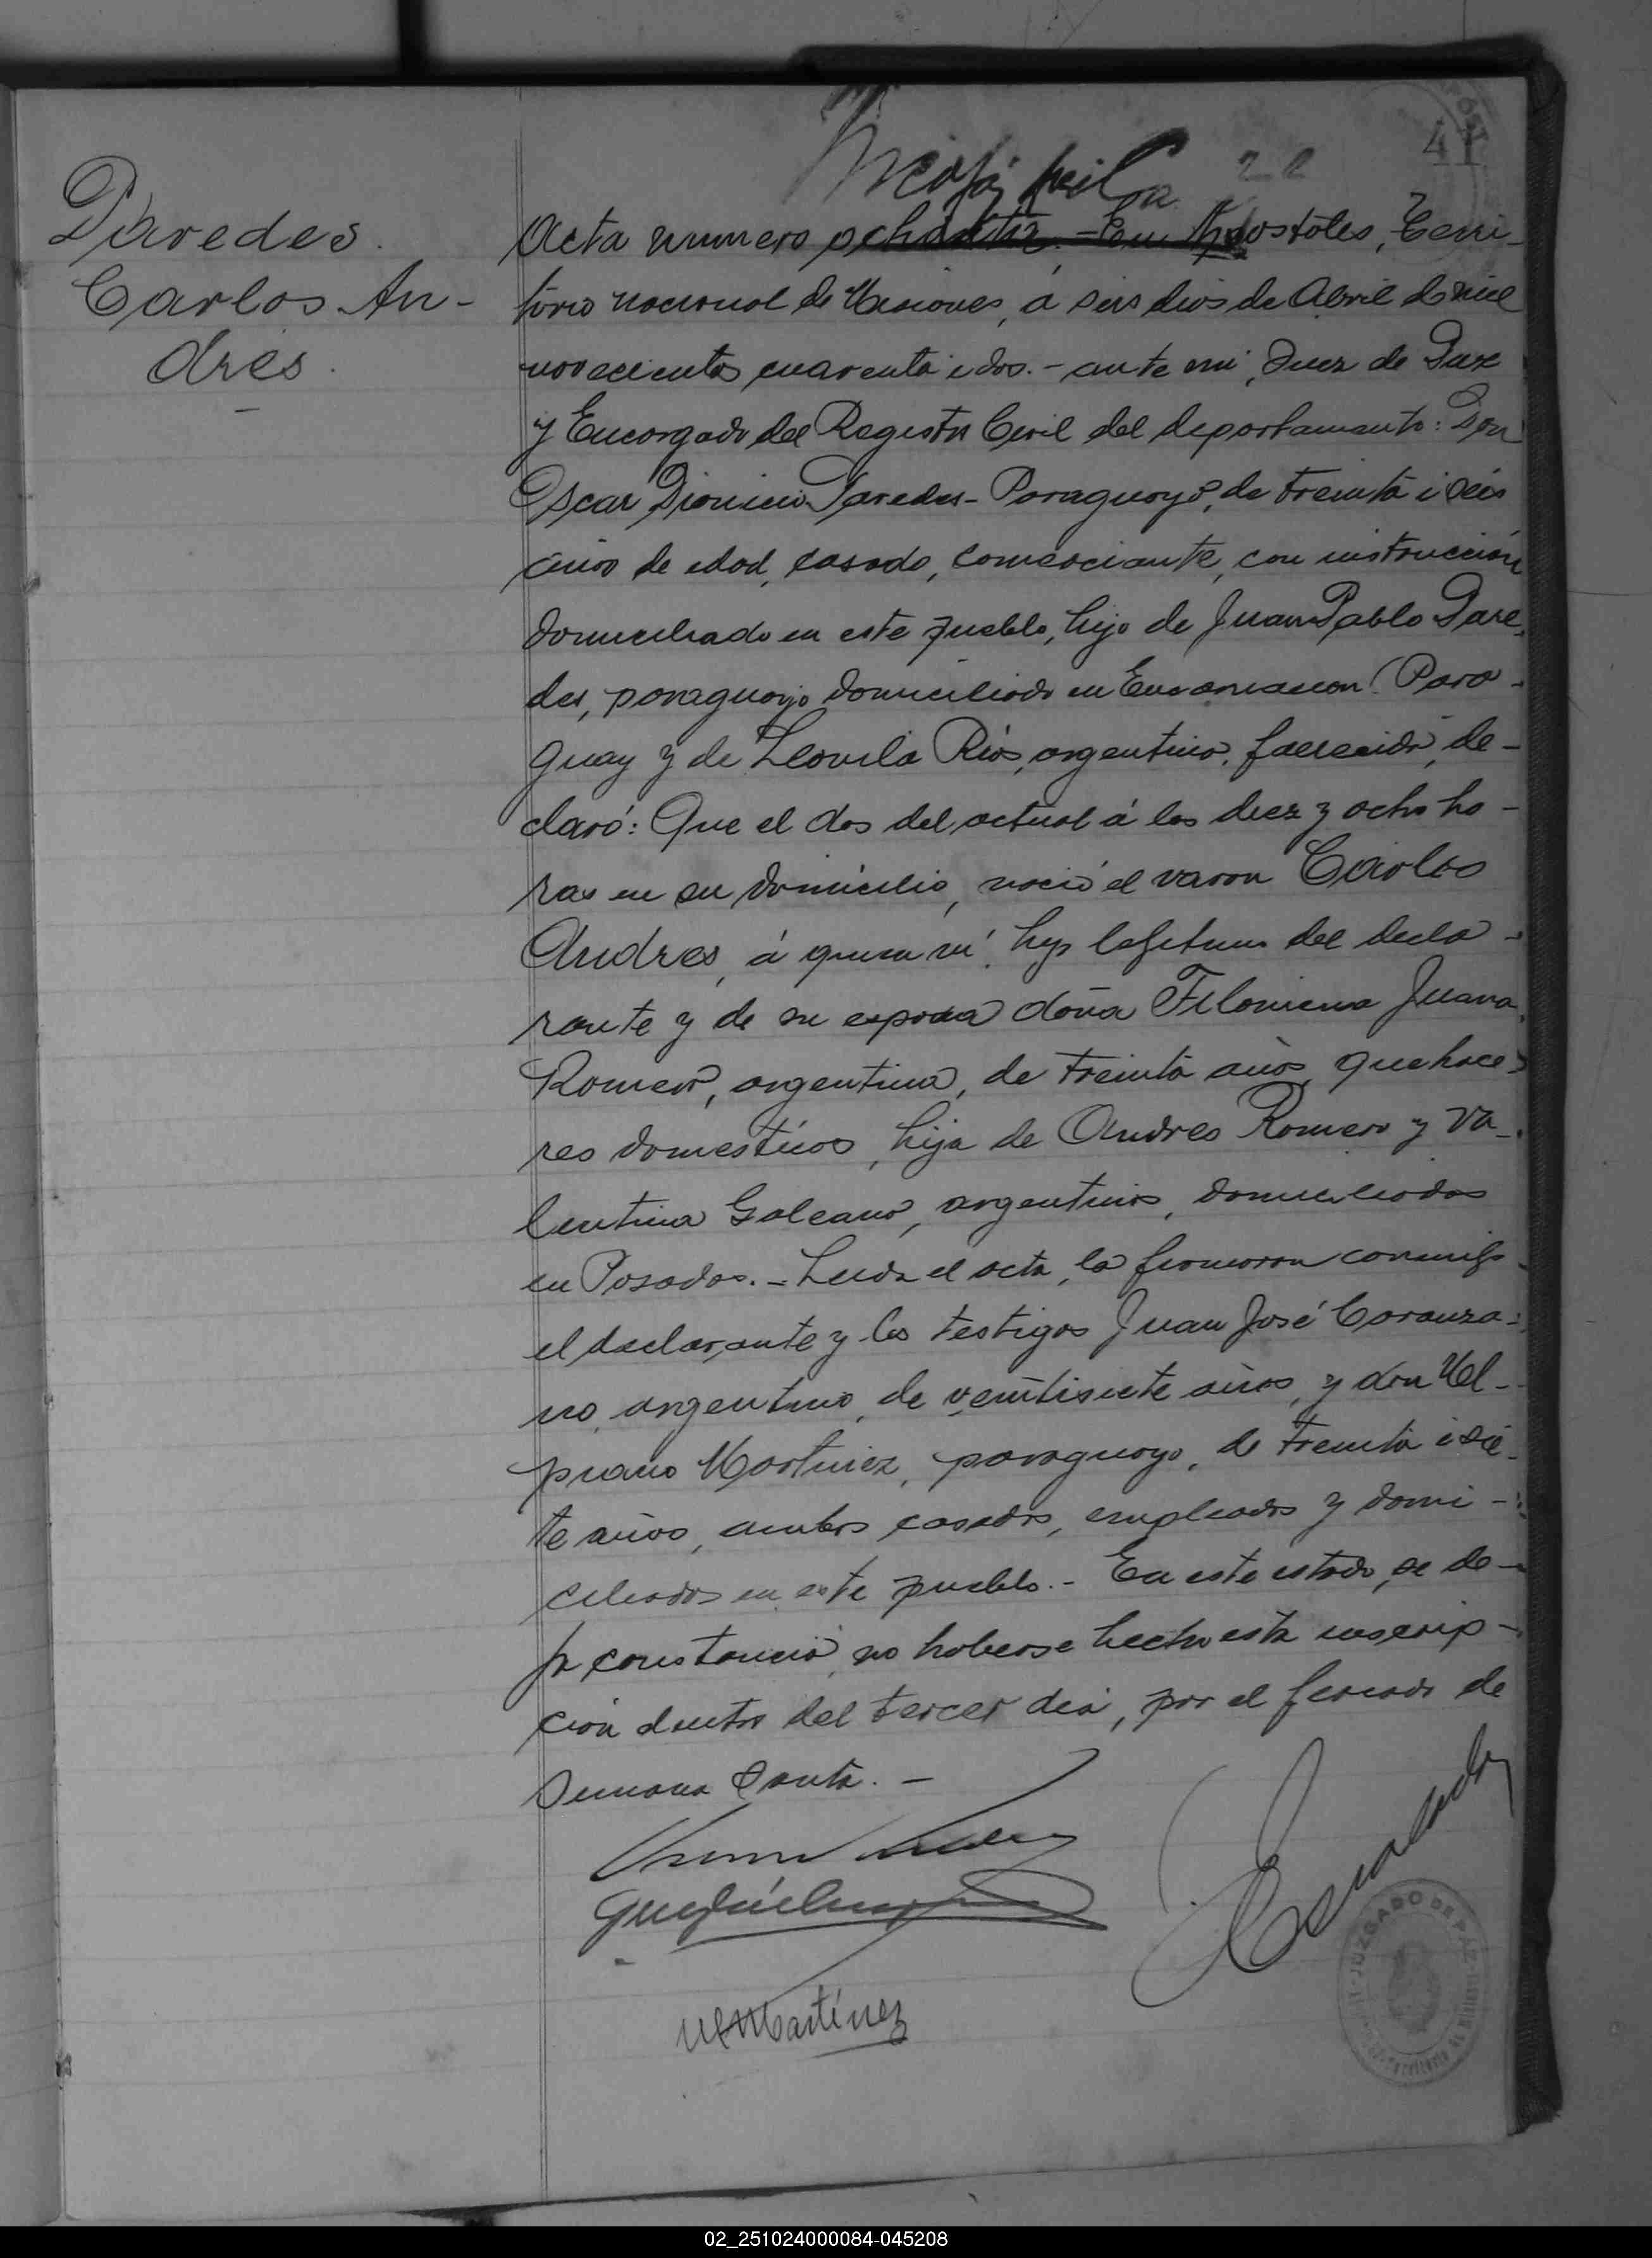 41
Paredes.
Carlos An-
drés.
Acta numero ochenta. - En Apostoles, Terri-
torio nacional de Misiones, á seis dias de Abril de mil
novecientos cuarenta i dos. - ante mi, Juez de Paz
y Encargado del Registro Civil del departamento: Don
Oscar Dionicio Paredes - Paraguayo, de treinta i seis
años de edad, casado, comerciante, con instrucción
domiciliado en este pueblo, hijo de Juan Pablo Pare-
des, paraguayo domiciliado en Encarnacion (Para-
guay y de Leovila Rios, argentina, fallecida, de-
claró: Que el dos del actual á las diez y ocho ho-
ras en su domicilio, nació el varon Carlos
Andres, á quien ví, hijo lejitimo del decla-
rante y de su esposa doña Filomena Juana
Romero, argentina, de treinta años, quehace-
res domesticos, hija de Andres Romero y Va-
lentina Galeano, argentinos, domiciliados
en Posadas. - Leida el acta, la firmaron conmigo
el declarante y los testigos Juan José Caranza-
no, argentino, de veintisiete años, y don Ul-
piano Martinez, paraguayo, de treinta i sie-
te años, ambos casados, empleados y domi-
ciliados en este pueblo. - En este estado, se de-
ja constancia no haberse hecho esta inscrip-
ción dentro del tercer dia, por el feriado de
Semana Santa. -
Martínez
JUZGADO DE PAZ
02_251024000084-045208